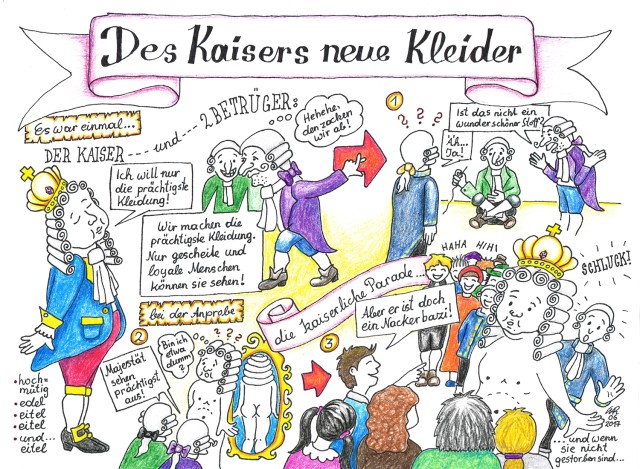 Des Kaisers neue Kleider
Es war einmal...
DER KAISER
und
2 BETRÜGER:
Ich will nur
die prächtigste
Kleidung!
Wir machen die
prächtigste Kleidung.
Nur gescheite und
loyale Menschen
können sie sehen!
Hehehe,
den zocken
wir ab!
1
? ? ?
Ist das nicht ein
wunderschöner Stoff?
Äh...
Ja!
hoch=
mütig
edel
eitel
eitel
und...
eitel
bei der Anprobe
2
Majestät
sehen
prächtigst
aus!
Bin ich
etwa
dumm?
? ? ?
die kaiserliche Parade...
3
HAHA
HIHI
Aber er ist doch
ein Nackerbazi!
SCHLUCK!
06
2017
...und wenn
sie nicht
gestorben sind...